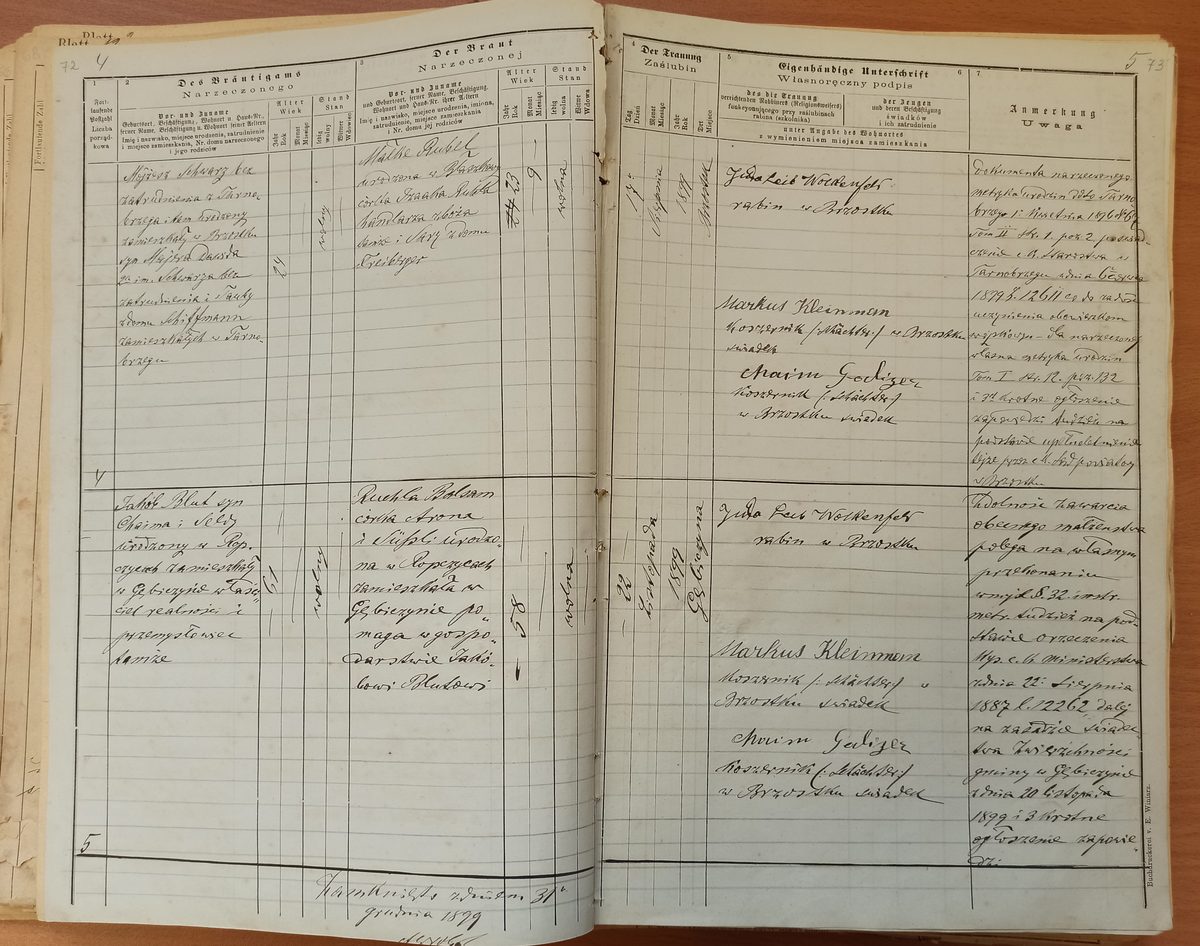 Blatt
Blatt
72 4
Des Bräutigams
Narzeczonego
Der Braut
Narzeczonej
1
2
3
Fort-
laufende
Postzahl
Liczba
porząd-
kowa
Vor- und Zuname
Geburtsort, Beschäftigung, Wohnort u. Haus-Nr., ferner Name, Beschäftigung u. Wohnort seiner Aeltern
Imię i nazwisko, miejsce urodzenia, zatrudnienie i miejsce zamieszkania, Nr. domu narzeczonego i jego rodziców
Alter
Wiek
Jahre
Rok
Monate
Miesiąc
Stand
Stan
ledig
wolny
Witwer
Wdowiec
Vor- und Zuname
und Geburtsort, ferner Name, Beschäftigung, Wohnort und Haus-Nr. ihrer Aeltern
Imię i nazwisko, miejsce urodzenia, imiona, zatrudnienie, miejsce zamieszkania i Nr. domu jej rodziców
Alter
Wiek
Jahre
Rok
Monate
Miesiąc
Stand
Stan
ledig
wolna
Witwe
Wdowa
Mojżesz Schwarz bez
zatrudnienia z Tarno-
brzega i tam urodzony
zamieszkały w Brzostku
syn Majera Dawida
2ga im. Schwarza bez
zatrudnienia i Tauby
z domu Schiffmann
zamieszkałych w Tarno-
brzegu
24
wolny
Malke Rubel
urodzona w Błażkowy
córka Izaaka Rubla
handlarza zboża
tamże i Sary z domu
Freiberger
23
9
wolna
4
Jakób Blut syn
Chaima i Seldy
urodzony w Rop-
czycach zamieszkały
w Gębiczynie właści-
ciel realności i
przemysłowiec
tamże
61
wolny
Ruchla Balsam
córka Arona
i Süssli urodzo-
na w Ropczycach
zamieszkała w
Gębiczynie po-
maga w gospo-
darstwie Jakó-
bowi Blutowi
58
wolna
5
Zamknięto z dniem 31
grudnia 1899
5 73
4
Der Trauung
Zaślubin
Tag
Dzień
Monat
Miesiąc
Jahr
Rok
Ort
Miejsce
5
Eigenhändige Unterschrift
Własnoręczny podpis
6
7
des die Trauung
verrichtenden Rabbiners (Religionsweisers)
funkcyonującego przy zaślubinach
rabina (szkolnika)
der Zeugen
und deren Beschäftigung
świadków
i ich zatrudnienie
unter Angabe des Wohnortes
z wymienieniem miejsca zamieszkania
Anmerkung
Uwaga
17
Sierpnia
1899
Brzostek
Juda Leib Wolkenfeld
rabin w Brzostku
Markus Kleinman
Koszernik (: Schächter :) w Brzostku
świadek
Chaim Galizer
Koszernik (: Schächter :)
w Brzostku świadek
Dokumenta narzeczonego
metryka urodzin ddto Tarno-
brzeg 1 Kwietnia 1896
Tom II str. 1. poz. 2 poświad-
czenie c. k. Starostwa w
Tarnobrzegu z dnia 6 Czerwca
1899 l. 12611 co do zadość
uczynienia obowiązkom
wojskowym - dla narzeczonej
własna metryka urodzin
Tom I str. 12. poz. 132
i 3 krotne ogłoszenie
zapowiedzi tudzież na
podstawie upełnoletnienia
tejże przez c. k. Sąd powiatowy
w Brzostku
22
Listopada
1899
Gębiczyna
Juda Leib Wolkenfeld
rabin w Brzostku
Markus Kleinman
Koszernik (: Schächter :) w
Brzostku świadek
Chaim Galizer
Koszernik (: Schächter :)
w Brzostku świadek
Zdolność zawarcia
obecnego małżeństwa
polega na własnym
przekonaniu
w myśl §. 32 instr.
metr. tudzież na pod-
stawie orzeczenia
Wys. c. k. Ministerstwa
z dnia 22 Sierpnia
1887 l. 12262 dalej
na zasadzie świadec-
twa Zwierzchności
gminy w Gębiczynie
z dnia 20 listopada
1899 i 3 krotne
ogłoszenie zapowie-
dzi
Buchdruckerei v. E. Winiarz.